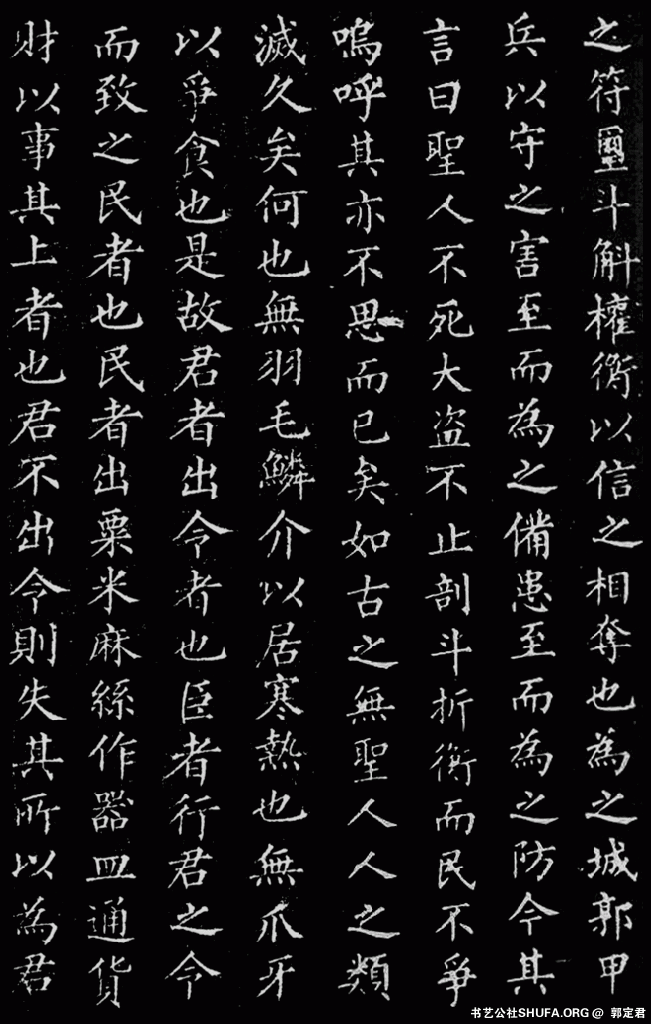 之符璽斗斛權衡以信之相奪也為之城郭甲
兵以守之害至而為之備患至而為之防今其
言曰聖人不死大盗不止剖斗折衡而民不爭
嗚呼其亦不思而已矣如古之無聖人人之類
滅久矣何也無羽毛鱗介以居寒熱也無爪牙
以爭食也是故君者出令者也臣者行君之令
而致之民者也民者出粟米麻絲作器皿通貨
财以事其上者也君不出令則失其所以為君
书艺公社SHUFA.ORG @ 郭定君